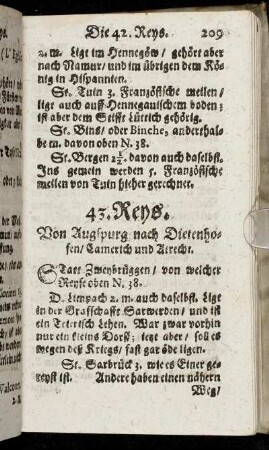 Die 42. Reys. 209
2. m. Ligt im Hennegöw/ gehört aber
nach Namur/ und im übrigen dem Kö-
nig in Hispannien.
St. Tuin 3. Französische meilen/
ligt auch auff Hennegauischem boden;
ist aber dem Stifft Lüttich gehörig.
St. Bins/ oder Binche, anderthal-
be m. davon oben N. 38.
St. Bergen 2½. davon auch daselbst.
Ins gemein werden 5. Französische
meilen von Tuin hieher gerechnet.
43. Reys.
Von Augspurg nach Dietenho-
fen/ Camerich und Atrecht.
Statt Zweybrüggen/ von welcher
Reyse oben N. 38.
D. Limpach 2. m. auch daselbst. Ligt
in der Graffschafft Sarwerden/ und ist
ein Trierisch Lehen. War zwar vorhin
nur ein kleins Dorff; jetzt aber/ soll es
wegen deß Kriegs/ fast gar öde ligen.
St. Sarbrück 3. wie es Einer ge-
reyst ist. Andere haben einen nähern
Weg/